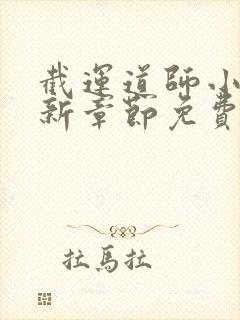 截運道師小
新章節免費
拉馬拉